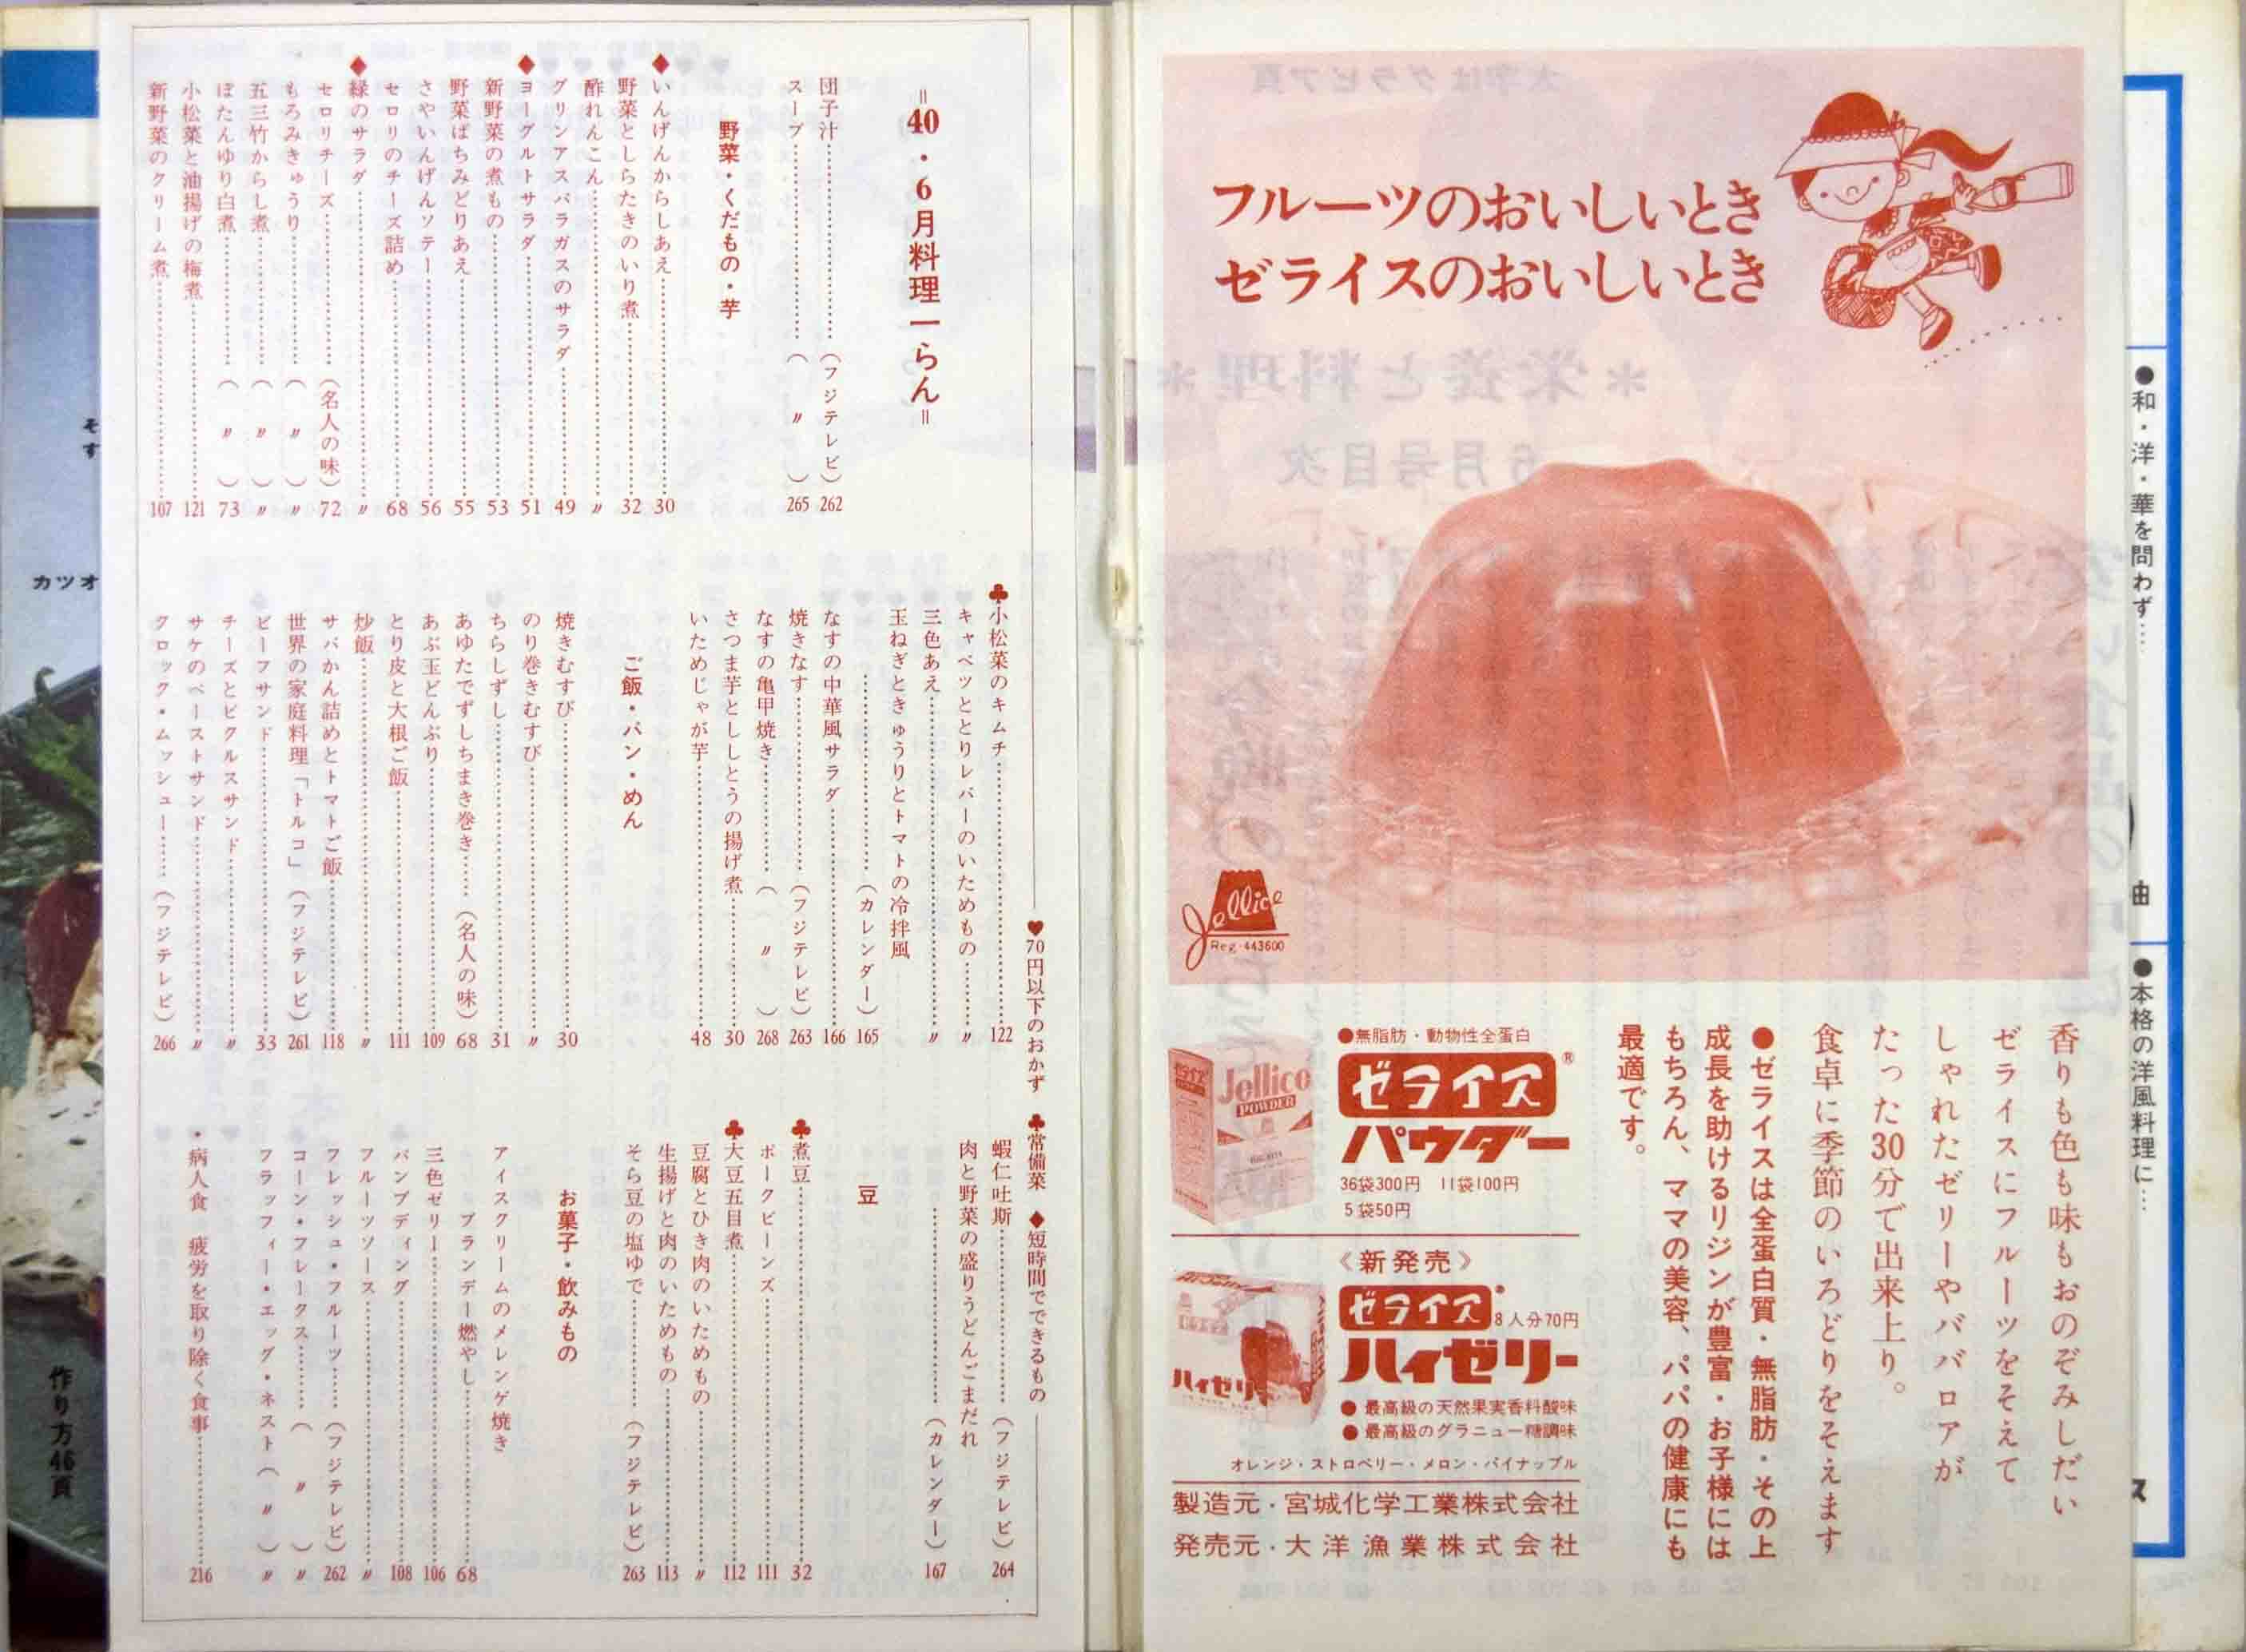 フルーツのおいしいとき
ゼライスのおいしいとき
Jellice
Reg・443600
香りも色も味もおのぞみしだい
ゼライスにフルーツをそえて
しゃれたゼリーやババロアが
たった30分で出来上り。
食卓に季節のいろどりをそえます
●ゼライスは全蛋白質・無脂肪・その上
成長を助けるリジンが豊富・お子様には
もちろん、ママの美容、パパの健康にも
最適です。
●無脂肪・動物性全蛋白
ゼライス®
パウダー
36袋300円 11袋100円
5袋50円
Jellice
POWDER
《新発売》
ゼライス®
8人分70円
ハイゼリー
●最高級の天然果実香料酸味
●最高級のグラニュー糖調味
オレンジ・ストロベリー・メロン・パイナップル
ハイゼリー
製造元・宮城化学工業株式会社
発売元・大洋漁業株式会社
●和・洋・華を問わず…
●本格の洋風料理に…
♥70円以下のおかず ♣常備菜 ♦短時間でできるもの
＝40・6月料理一らん＝
団子汁……(フジテレビ)262
スープ……(〃)265
野菜・くだもの・芋
♦いんげんからしあえ……30
野菜としらたきのいり煮……32
酢れんこん……〃
グリンアスパラガスのサラダ……49
♦ヨーグルトサラダ……51
新野菜の煮もの……53
野菜はちみどりあえ……55
さやいんげんソテー……56
セロリのチーズ詰め……68
♦緑のサラダ……〃
セロリチーズ……(名人の味)72
もろみきゅうり……(〃)〃
五三竹からし煮……(〃)〃
ぼたんゆり白煮……(〃)73
小松菜と油揚げの梅煮……121
新野菜のクリーム煮……107
♣小松菜のキムチ……122
キャベツととりレバーのいためもの……〃
三色あえ……〃
玉ねぎときゅうりとトマトの冷拌風
……(カレンダー)165
なすの中華風サラダ……166
焼きなす……(フジテレビ)263
なすの亀甲焼き……(〃)268
さつま芋とししとうの揚げ煮……30
いためじゃが芋……48
ご飯・パン・めん
焼きむすび……30
のり巻きむすび……〃
ちらしずし……31
あゆたでずしちまき巻き……(名人の味)68
あぶ玉どんぶり……109
とり皮と大根ご飯……111
炒飯……〃
サバかん詰めとトマトご飯……118
世界の家庭料理「トルコ」(フジテレビ)261
ビーフサンド……33
チーズとピクルスサンド……〃
サケのペーストサンド……〃
クロック・ムッシュー……(フジテレビ)266
蝦仁吐斯……(フジテレビ)264
肉と野菜の盛りうどんごまだれ
……(カレンダー)167
豆
♣煮豆……32
ポークビーンズ……111
♣大豆五目煮……112
豆腐とひき肉のいためもの……〃
生揚げと肉のいためもの……113
そら豆の塩ゆで……(フジテレビ)263
お菓子・飲みもの
アイスクリームのメレンゲ焼き
ブランデー燃やし……68
三色ゼリー……106
パンプディング……108
フルーツソース……〃
フレッシュ・フルーツ……(フジテレビ)262
コーン・フレークス……(〃)〃
フラッフィー・エッグ・ネスト(〃)〃
・病人食 疲労を取り除く食事……216
カツオ
作り方46頁